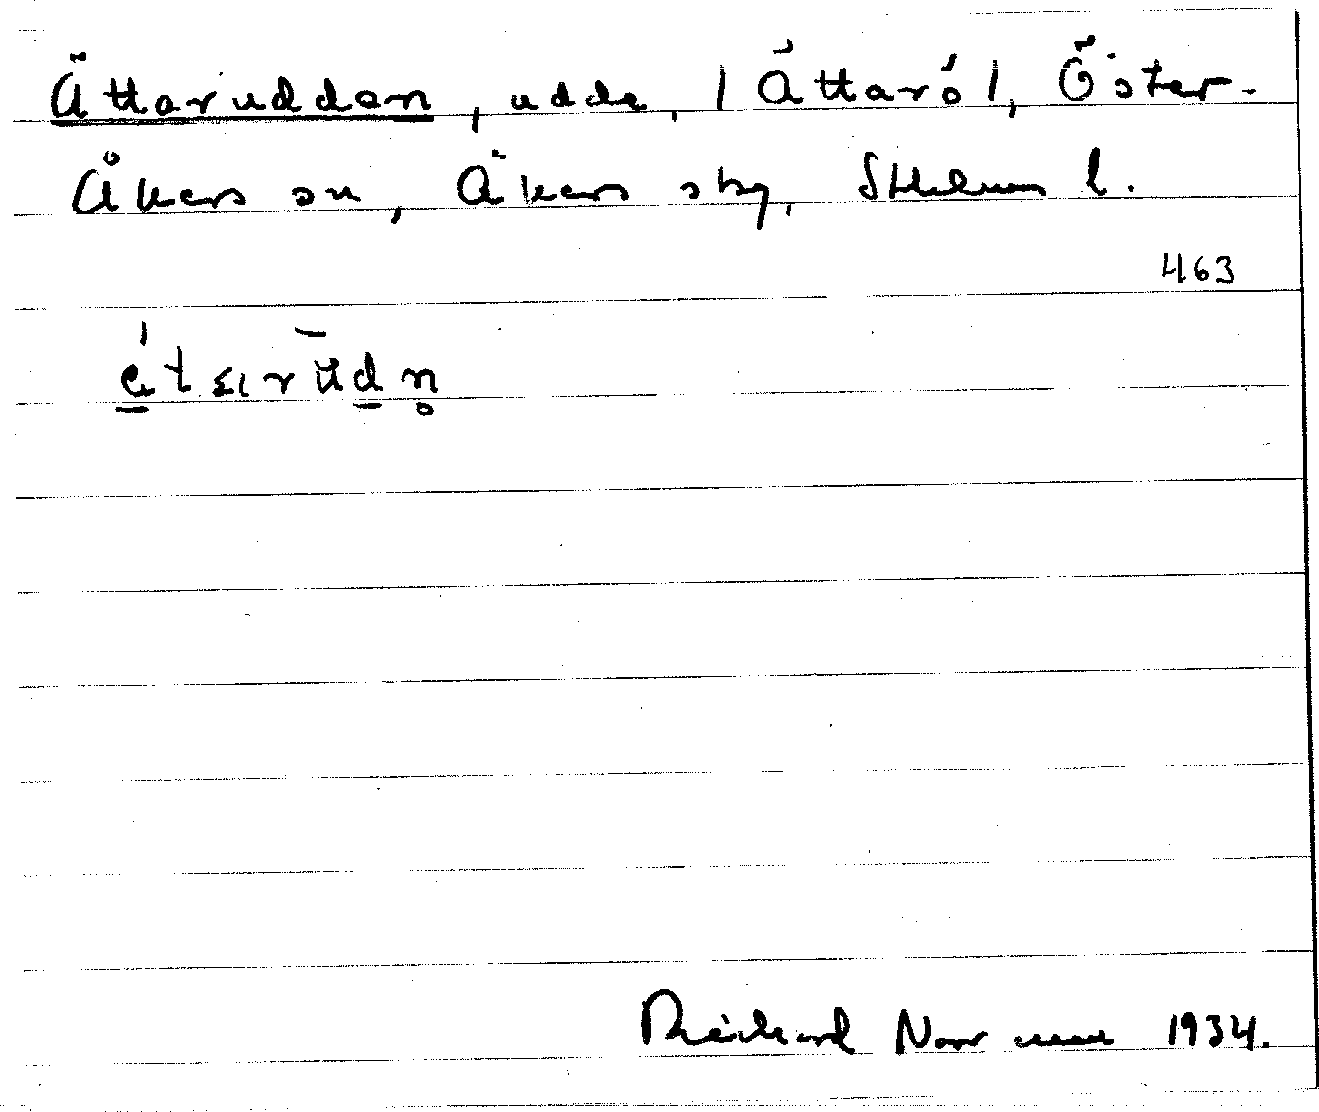 Ättaruddan, udde, / Åttarö /, Öster-
Åkers sn, Åkers skg, Sthlms l.
463
Rickard Norrman 1934.